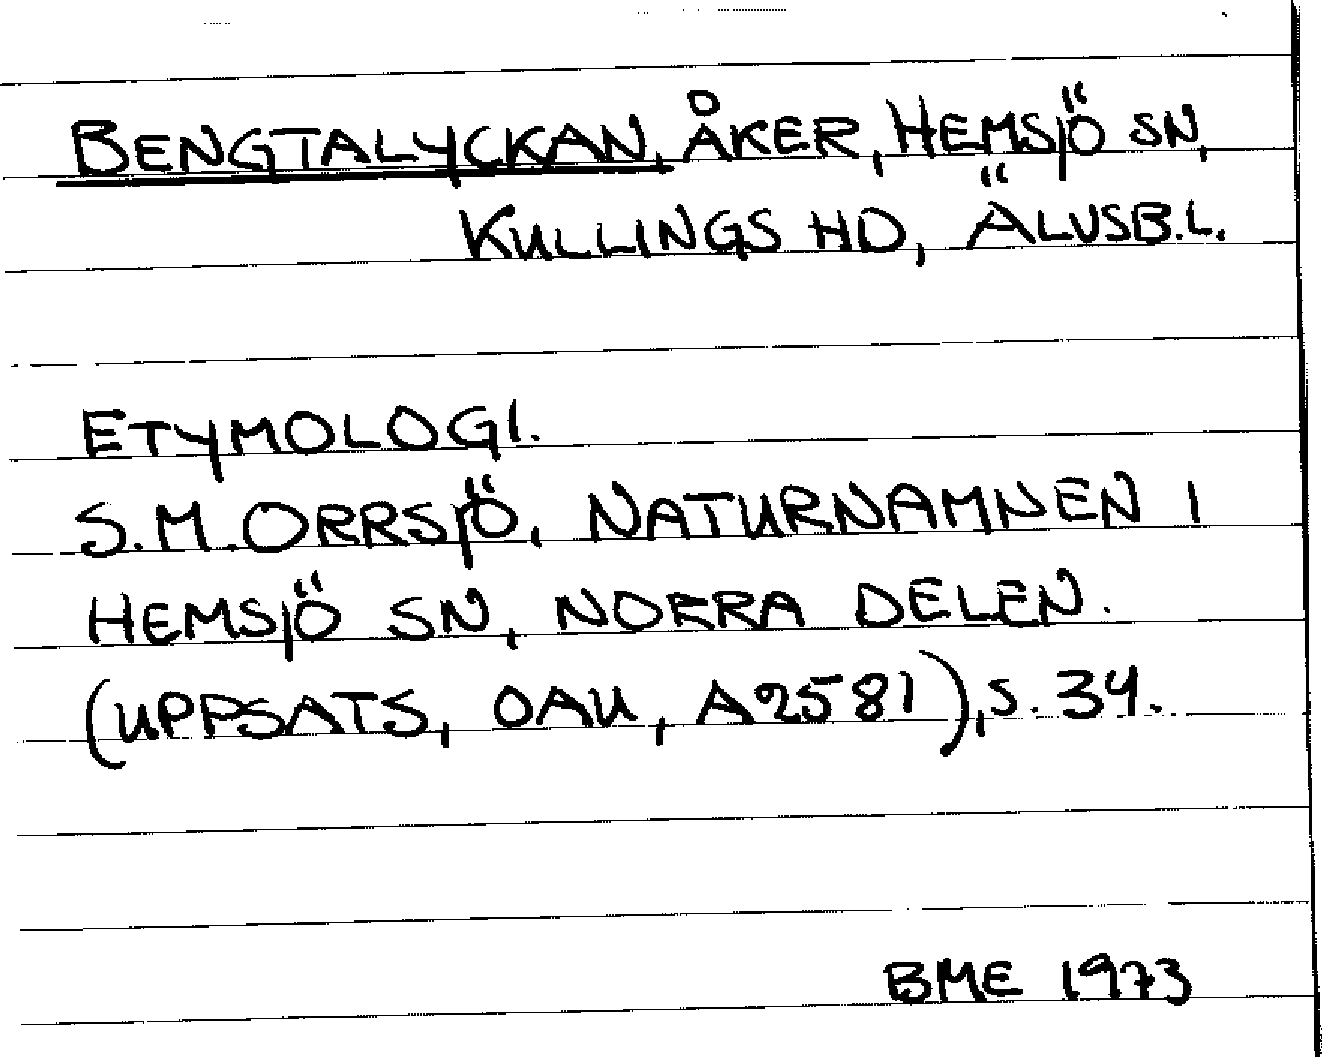 BENGTALYCKAN, ÅKER, HEMSJÖ SN,
KULLINGS HD, ÄLVSB.L.
ETYMOLOGI.
S.M. ORRSJÖ, NATURNAMNEN I
HEMSJÖ SN, NORRA DELEN.
(UPPSATS, OAU, A2581), S. 34.
BME 1973